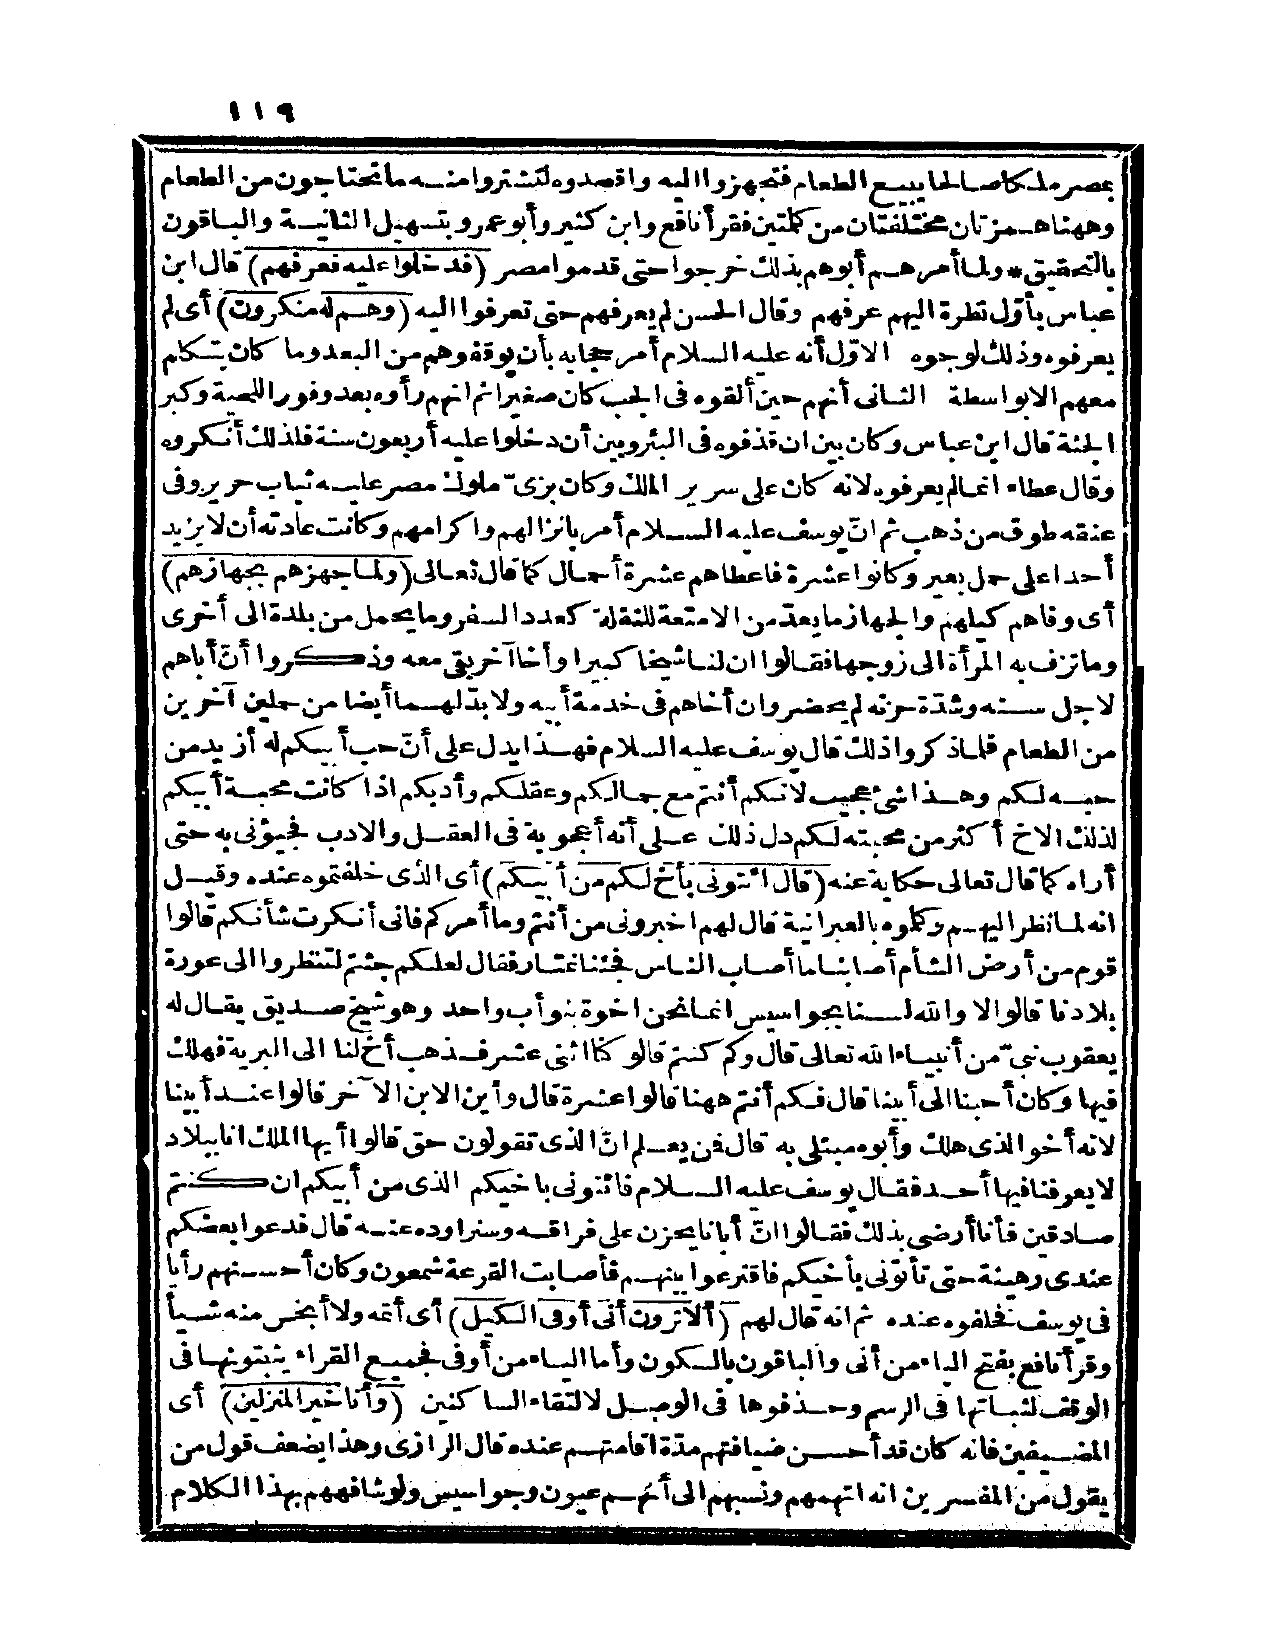 ١١٩
بمصر ملكا صالحا يبيع الطعام فتجهزوا اليه واقصدوه لتشتروا منه ما تحتاجون من الطعام
وههنا همزتان مختلفتان من كلمتين فقرأ نافع وابن كثير وأبو عمرو بتسهيل الثانية والباقون
بالتحقيق * ولما أمرهم أبوهم بذلك خرجوا حتى قدموا مصر (فدخلوا عليه فعرفهم) قال ابن
عباس بأوّل نظرة اليهم عرفهم وقال الحسن لم يعرفهم حتى تعرفوا اليه (وهم له منكرون) أى لم
يعرفوه وذلك لوجوه الاوّل أنه عليه السلام أمر حجابه بأن يوقفوهم من البعد وما كان يتكلم
معهم الا بواسطة الثانى أنهم حين ألقوه فى الجب كان صغيرا ثم انهم رأوه بعد وفور اللحية وكبر
الجثة قال ابن عباس وكان بين ان قذفوه فى البئر وبين أن دخلوا عليه أربعون سنة فلذلك أنكروه
وقال عطاء انما لم يعرفوه لانه كان على سرير الملك وكان بزىّ ملوك مصر عليه ثياب حرير وفى
عنقه طوق من ذهب ثم انّ يوسف عليه السلام أمر بانزالهم واكرامهم وكانت عادته أن لا يزيد
أحدا على حمل بعير وكانوا عشرة فاعطاهم عشرة أحمال كما قال تعالى (ولما جهزهم بجهازهم)
أى وفاهم كيلهم والجهاز ما يعدّ من الامتعة للنقلة كعدد السفر وما يحمل من بلدة الى أخرى
وما تزف به المرأة الى زوجها فقالوا ان لنا شيخا كبيرا وأخا آخر بقى معه وذكروا أنّ أباهم
لاجل سنه وشدّة حزنه لم يحضر وان أخاهم فى خدمة أبيه ولا بدّ لهما أيضا من حملين آخرين
من الطعام فلما ذكروا ذلك قال يوسف عليه السلام فهذا يدل على أنّ حب أبيكم له أزيد من
حبه لكم وهذا شئ عجيب لانكم أنتم مع جمالكم وعقلكم وأدبكم اذا كانت محبة أبيكم
لذلك الاخ أكثر من محبته لكم دل ذلك على أنه أعجوبة فى العقل والادب فجيؤنى به حتى
أراه كما قال تعالى حكاية عنه (قال ائتونى بأخ لكم من أبيكم) أى الذى خلفتموه عنده وقيل
انه لما نظر اليهم وكلموه بالعبرانية قال لهم اخبرونى من أنتم وما أمركم فانى أنكرت شأنكم قالوا
قوم من أرض الشأم أصابنا ما أصاب الناس فجئنا نمتار فقال لعلكم جئتم لتنظروا الى عورة
بلادنا قالوا لا والله لسنا بجواسيس انما نحن اخوة بنو أب واحد وهو شيخ صديق يقال له
يعقوب نبىّ من أنبياء الله تعالى قال وكم كنتم قالوا كنا اثنى عشر فذهب أخ لنا الى البرية فهلك
فيها وكان أحبنا الى أبينا قال فكم أنتم ههنا قالوا عشرة قال وأين الابن الآخر قالوا عند أبينا
لانه أخو الذى هلك وأبوه مبتلى به قال فمن يعلم انّ الذى تقولون حق قالوا أيها الملك انا ببلاد
لا يعرفنا فيها أحد فقال يوسف عليه السلام فائتونى باخيكم الذى من أبيكم ان كنتم
صادقين فأنا أرضى بذلك فقالوا انّ أبانا يحزن على فراقه وسنراوده عنه قال فدعوا بعضكم
عندى رهينة حتى تأتونى بأخيكم فاقترعوا بينهم فأصابت القرعة شمعون وكان أحسنهم رأيا
فى يوسف فخلفوه عنده ثم انه قال لهم (ألا ترون أنى أوفى الكيل) أى أتمه ولا أبخس منه شيأ
وقرأ نافع بفتح الياء من أنى والباقون بالسكون وأما الياء من أوفى فجميع القراء يثبتونها فى
الوقف لثباتها فى الرسم وحذفوها فى الوصل لالتقاء الساكنين (وأنا خير المنزلين) أى
المضيفين فانه كان قد أحسن ضيافتهم مدّة اقامتهم عنده قال الرازى وهذا يضعف قول من
يقول من المفسرين انه اتهمهم ونسبهم الى أنهم عيون وجواسيس ولو شافههم بهذا الكلام